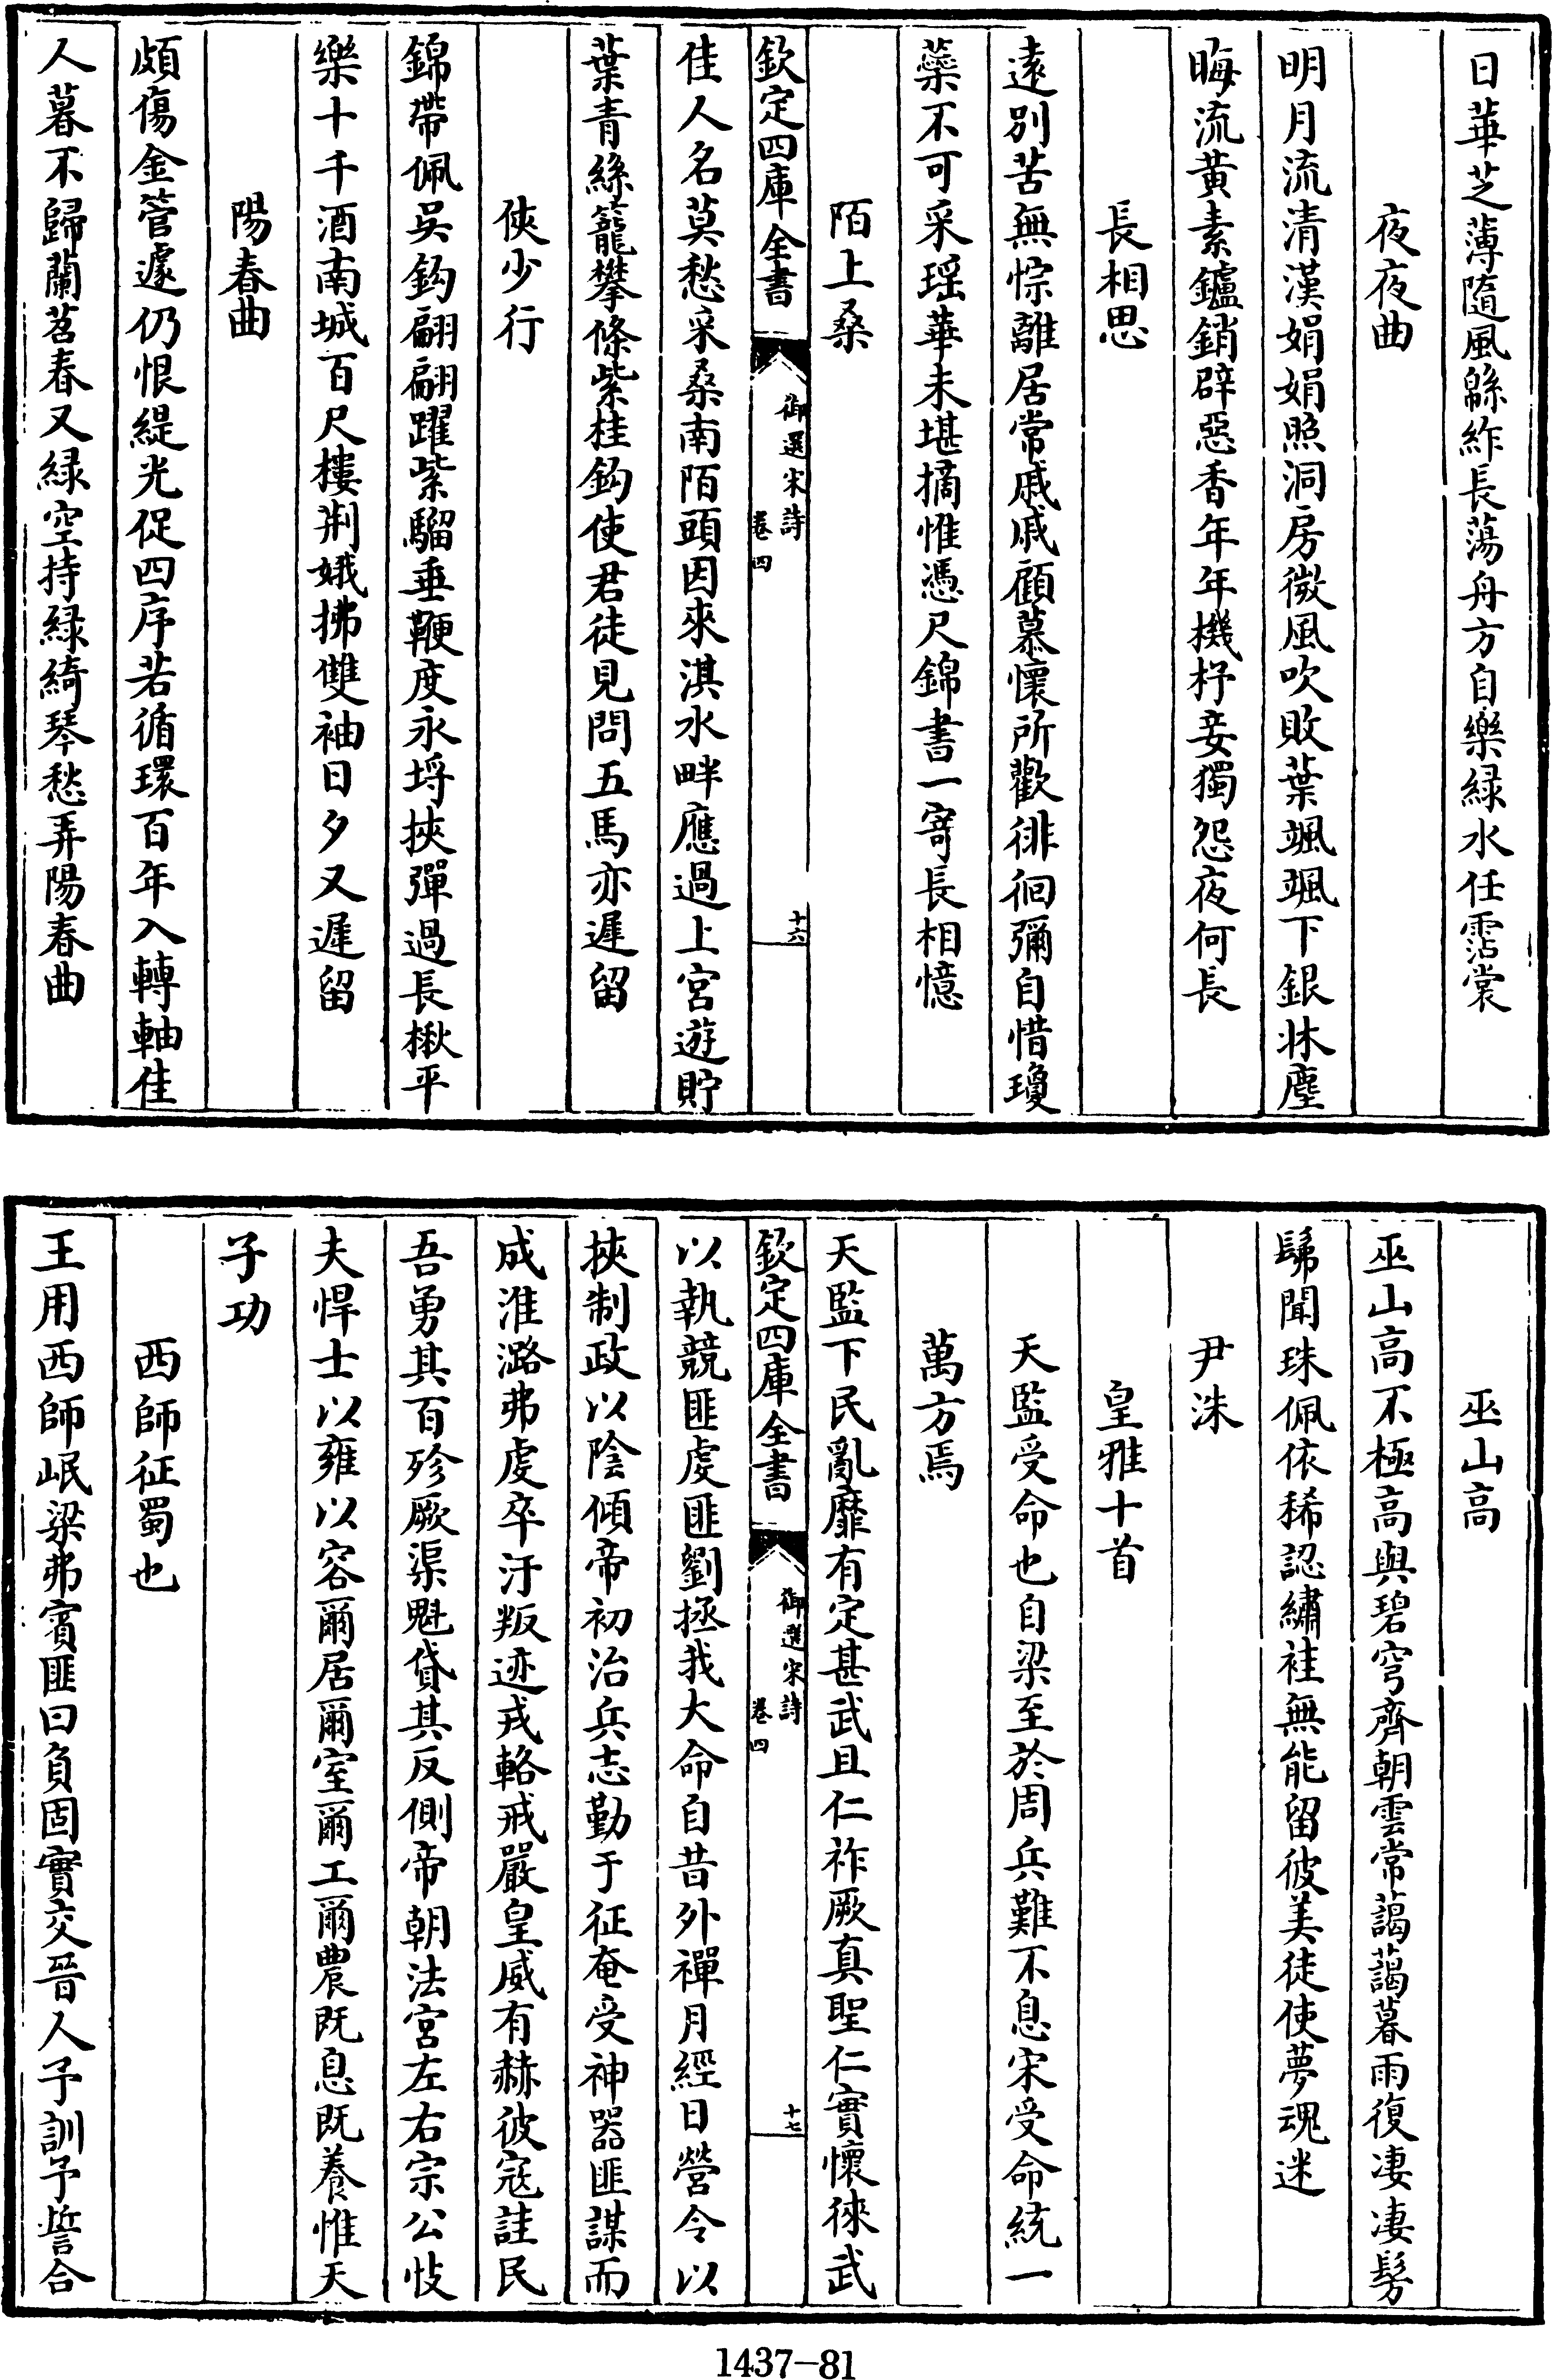 日華芝薄隨風緜紼長蕩舟方自樂緑水任霑裳
夜夜曲
明月流清漢娟娟照洞房微風吹敗葉颯颯下銀牀塵
晦流黄素鑪銷辟惡香年年機杼妾獨怨夜何長
長相思
逺別苦無悰離居常戚戚顧慕懷所歡徘徊彌自惜瓊
蘂不可采瑶華未堪摘惟憑尺錦書一寄長相憶
陌上桑
欽定四庫全書
御選宋詩
卷四
十六
佳人名莫愁采桑南陌頭因來淇水畔應過上宮遊貯
葉青絲籠攀條紫桂鈎使君徒見問五馬亦遲留
俠少行
錦帶佩吳鈎翩翩躍紫騮垂鞭度永埒挾彈過長楸平
樂十千酒南城百尺樓荆娥拂雙袖日夕又遲留
陽春曲
頗傷金管遽仍恨緹光促四序若循環百年入轉軸佳
人暮不歸蘭苕春又緑空持緑綺琴愁弄陽春曲
巫山高
巫山高不極高與碧穹齊朝雲常藹藹暮雨復凄凄髣
髴聞珠佩依稀認繡袿無能留彼美徒使夢魂迷
尹洙
皇雅十首
天監受命也自梁至於周兵難不息宋受命統一
萬方焉
天監下民亂靡有定甚武且仁祚厥真聖仁實懷徠武
欽定四庫全書
御選宋詩
卷四
十七
以執競匪虔匪劉拯我大命自昔外禪月經日營令以
挾制政以陰傾帝初治兵志勤于征奄受神器匪謀而
成淮潞弗虔卒汙叛迹戎輅戒嚴皇威有赫彼寇詿民
吾勇其百殄厥渠魁貸其反側帝朝法宮左右宗公忮
夫悍士以雍以容爾居爾室爾工爾農既息既養惟天
子功
西師征蜀也
王用西師岷梁弗賓匪曰負固實交晉人予訓予誓合
1437-81